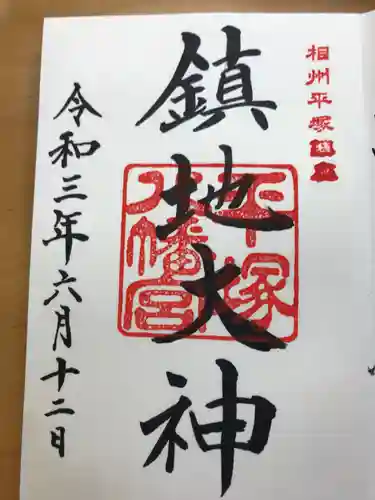 相州平塚
鎮地大神
平塚
八幡宮
令和三年六月十二日